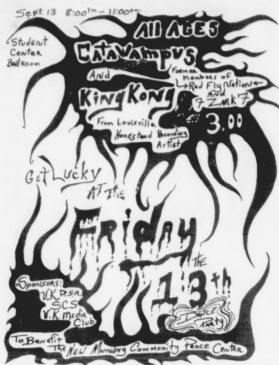 Sept 13 8:00pm - 11:00pm
Student
Center
Ballroom
All Ages
Catawampus
And
Former
members of
Red Fly Nation
And
Zark 7
King Kong
From Louisville
Homestead Recording
Artist
$3.00
Get Lucky
AT THIS
Friday
THE
13th
Dance
Party
Sponsors:
U.K. D.S.A.
SCS
U.K. Media
Club
To Benefit
The New Morning Community Peace Centre